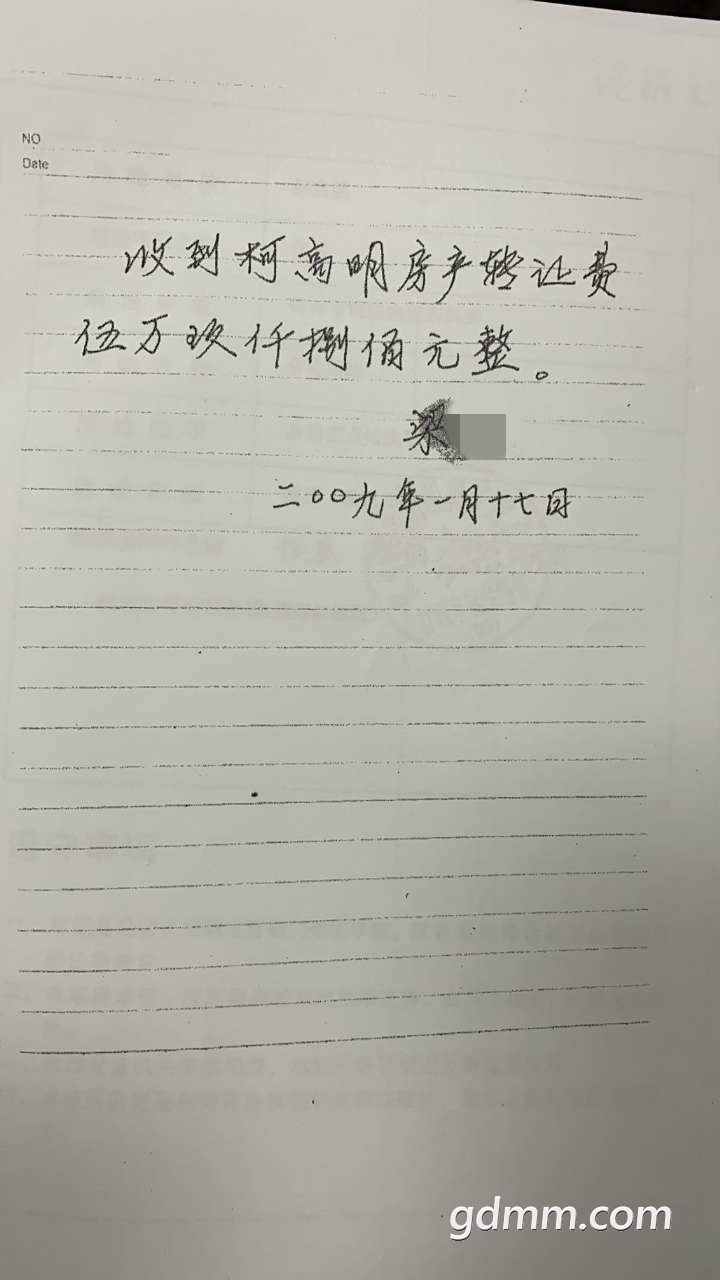 NO
Date
收到柯高明房产转让费
伍万玖仟捌佰元整。
梁
二〇〇九年一月十七日
gdmm.com